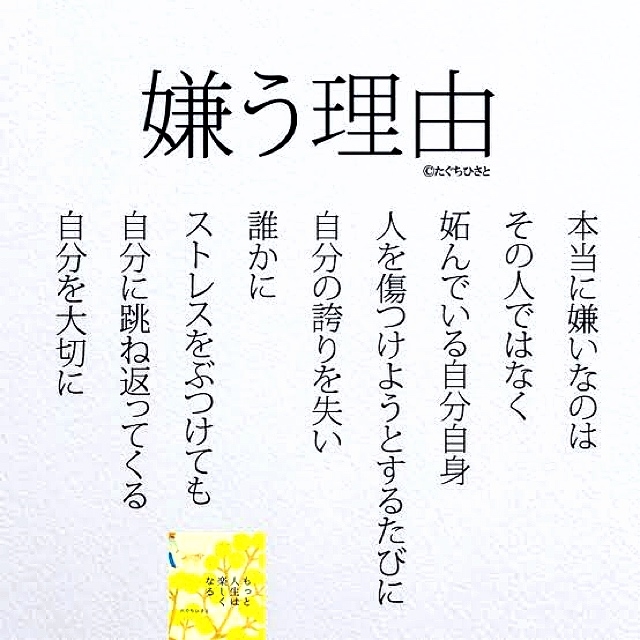 嫌う理由
©たぐちひさと
本当に嫌いなのは
その人ではなく
妬んでいる自分自身
人を傷つけようとするたびに
自分の誇りを失い
誰かに
ストレスをぶつけても
自分に跳ね返ってくる
自分を大切に
もっと
人生は
楽しく
なる
たぐちひさと